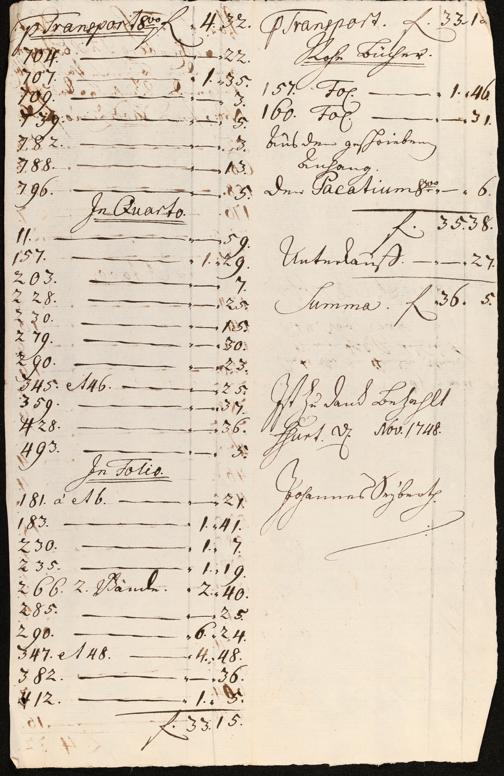 p Transport 8voo f. 4. 32.
704. — 22.
707. — 1. 35.
709. — 3.
739. — 5.
782. — 3.
788. — 13.
796. — 5.
In Quarto.
11. — 59.
157. — 1. 29.
203. — 7.
228. — 25.
230. — 15.
279. — 30.
290. — 23.
345. et 46. — 25.
359. — 37.
428. — 36.
493. — 5.
In Folio.
181. a et 6. — 21.
183. — 1. 41.
230. — 1. 7.
235. — 1. 19.
266. 2. Bände. — 2. 40.
285. — 25.
290. — 6. 24.
347. et 48. — 4. 48.
382. — 36.
412. — 1. 5.
f. 33. 15.
p Transport. f. 33. 15
Rohe Bücher.
157. Fol. — 1. 46.
160. Fol. — 31.
Aus dem geschrieben
Anhang
den Pacatium 8voo — 6.
f. 35. 38.
— 27.
Summa. f. 36. 5.
Ist zu Dank bezahlt
Nov. 1748.
Johannes Seyberth